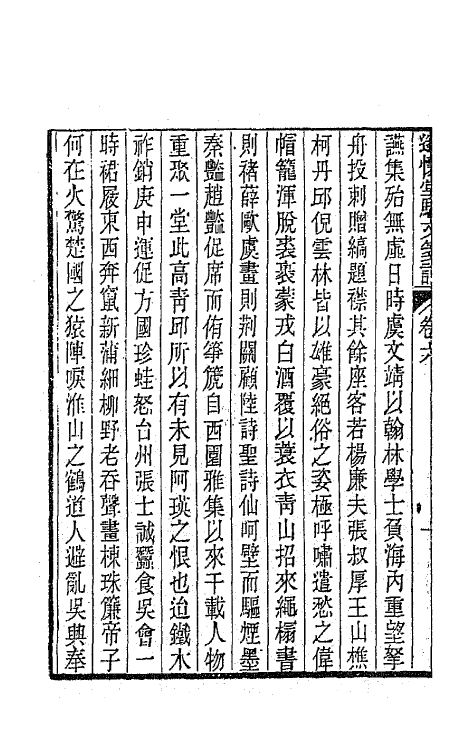 邃懷堂駢文箋註 卷六
讌集殆無虛日時虞文靖以翰林學士負海內重望拏
舟投刺贈縞題襟其餘座客若楊廉夫張叔厚王山樵
柯丹邱倪雲林皆以雄豪絕俗之姿極呼嘯遣愁之偉
帽籠渾脫裘裂蒙戎白酒覆以蓑衣靑山招來繩榻書
則褚薛歐虞畫則荆關顧陸詩聖詩仙呵壁而驅煙墨
秦豔趙豔促席而侑箏篪自西園雅集以來千載人物
重聚一堂此高靑邱所以有未見阿瑛之恨也迨鐵木
祚銷庚申運促方國珍蛙怒台州張士誠蠶食吳會一
時裙屐東西奔竄新蒲細柳野老吞聲畫棟珠簾帝子
何在火驚楚國之猿陣唳淮山之鶴道人避亂吳興奉